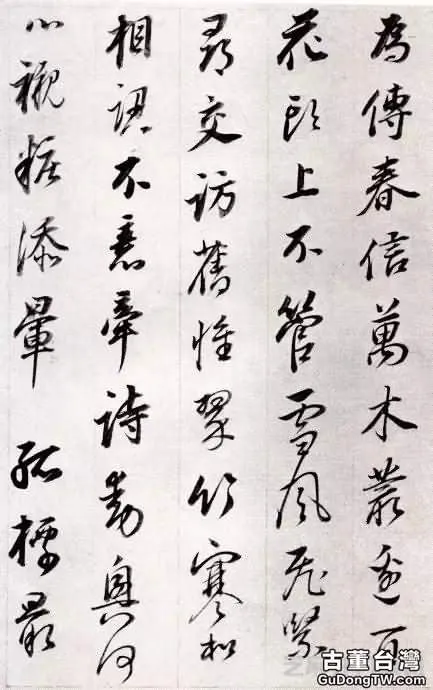 為傳春信萬木叢邊百
花頭上不管雪風飛緊
尋交訪舊惟翠竹寒松
相認不意牽詩動興何
心襯粧添暈 孤標最
古董台灣
GuDongTW.com